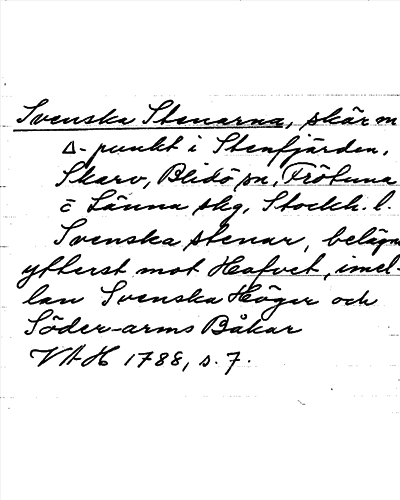 Svenska Stenarna, skär m
Δ-punkt i Stenfjärden,
Skarv, Blidö sn, Frötuna
o Länna skg, Stockh. l.
Svenska stenar, belägna
ytterst mot Hafvet, imel-
lan Svenska Höger och
Söder-arms Båkar
VAH 1788, s. 7.